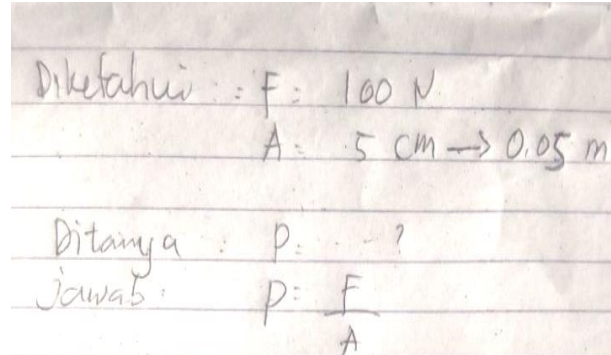 Diketahui : F = 100 N
A = 5 cm → 0.05 m
Ditanya : P = ... ?
jawab : P = F
A